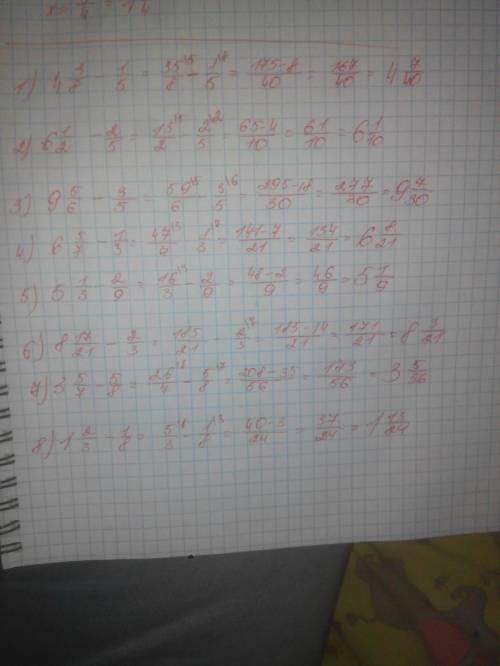 1) 4 3/8 - 1/5 = 35/8 - 1/5 = 175-8/40 = 167/40 = 4 7/40
2) 6 1/2 - 2/5 = 13/2 - 2/5 = 65-4/10 = 61/10 = 6 1/10
3) 9 5/6 - 3/5 = 59/6 - 3/5 = 295-18/30 = 277/30 = 9 7/30
4) 6 5/7 - 1/3 = 47/7 - 1/3 = 141-7/21 = 134/21 = 6 8/21
5) 5 1/3 - 2/9 = 16/3 - 2/9 = 48-2/9 = 46/9 = 5 1/9
6) 8 17/21 - 2/3 = 185/21 - 2/3 = 185-14/21 = 171/21 = 8 3/21
7) 3 5/7 - 5/8 = 26/7 - 5/8 = 208-35/56 = 173/56 = 3 5/56
8) 1 2/3 - 1/8 = 5/3 - 1/8 = 40-3/24 = 37/24 = 1 13/24